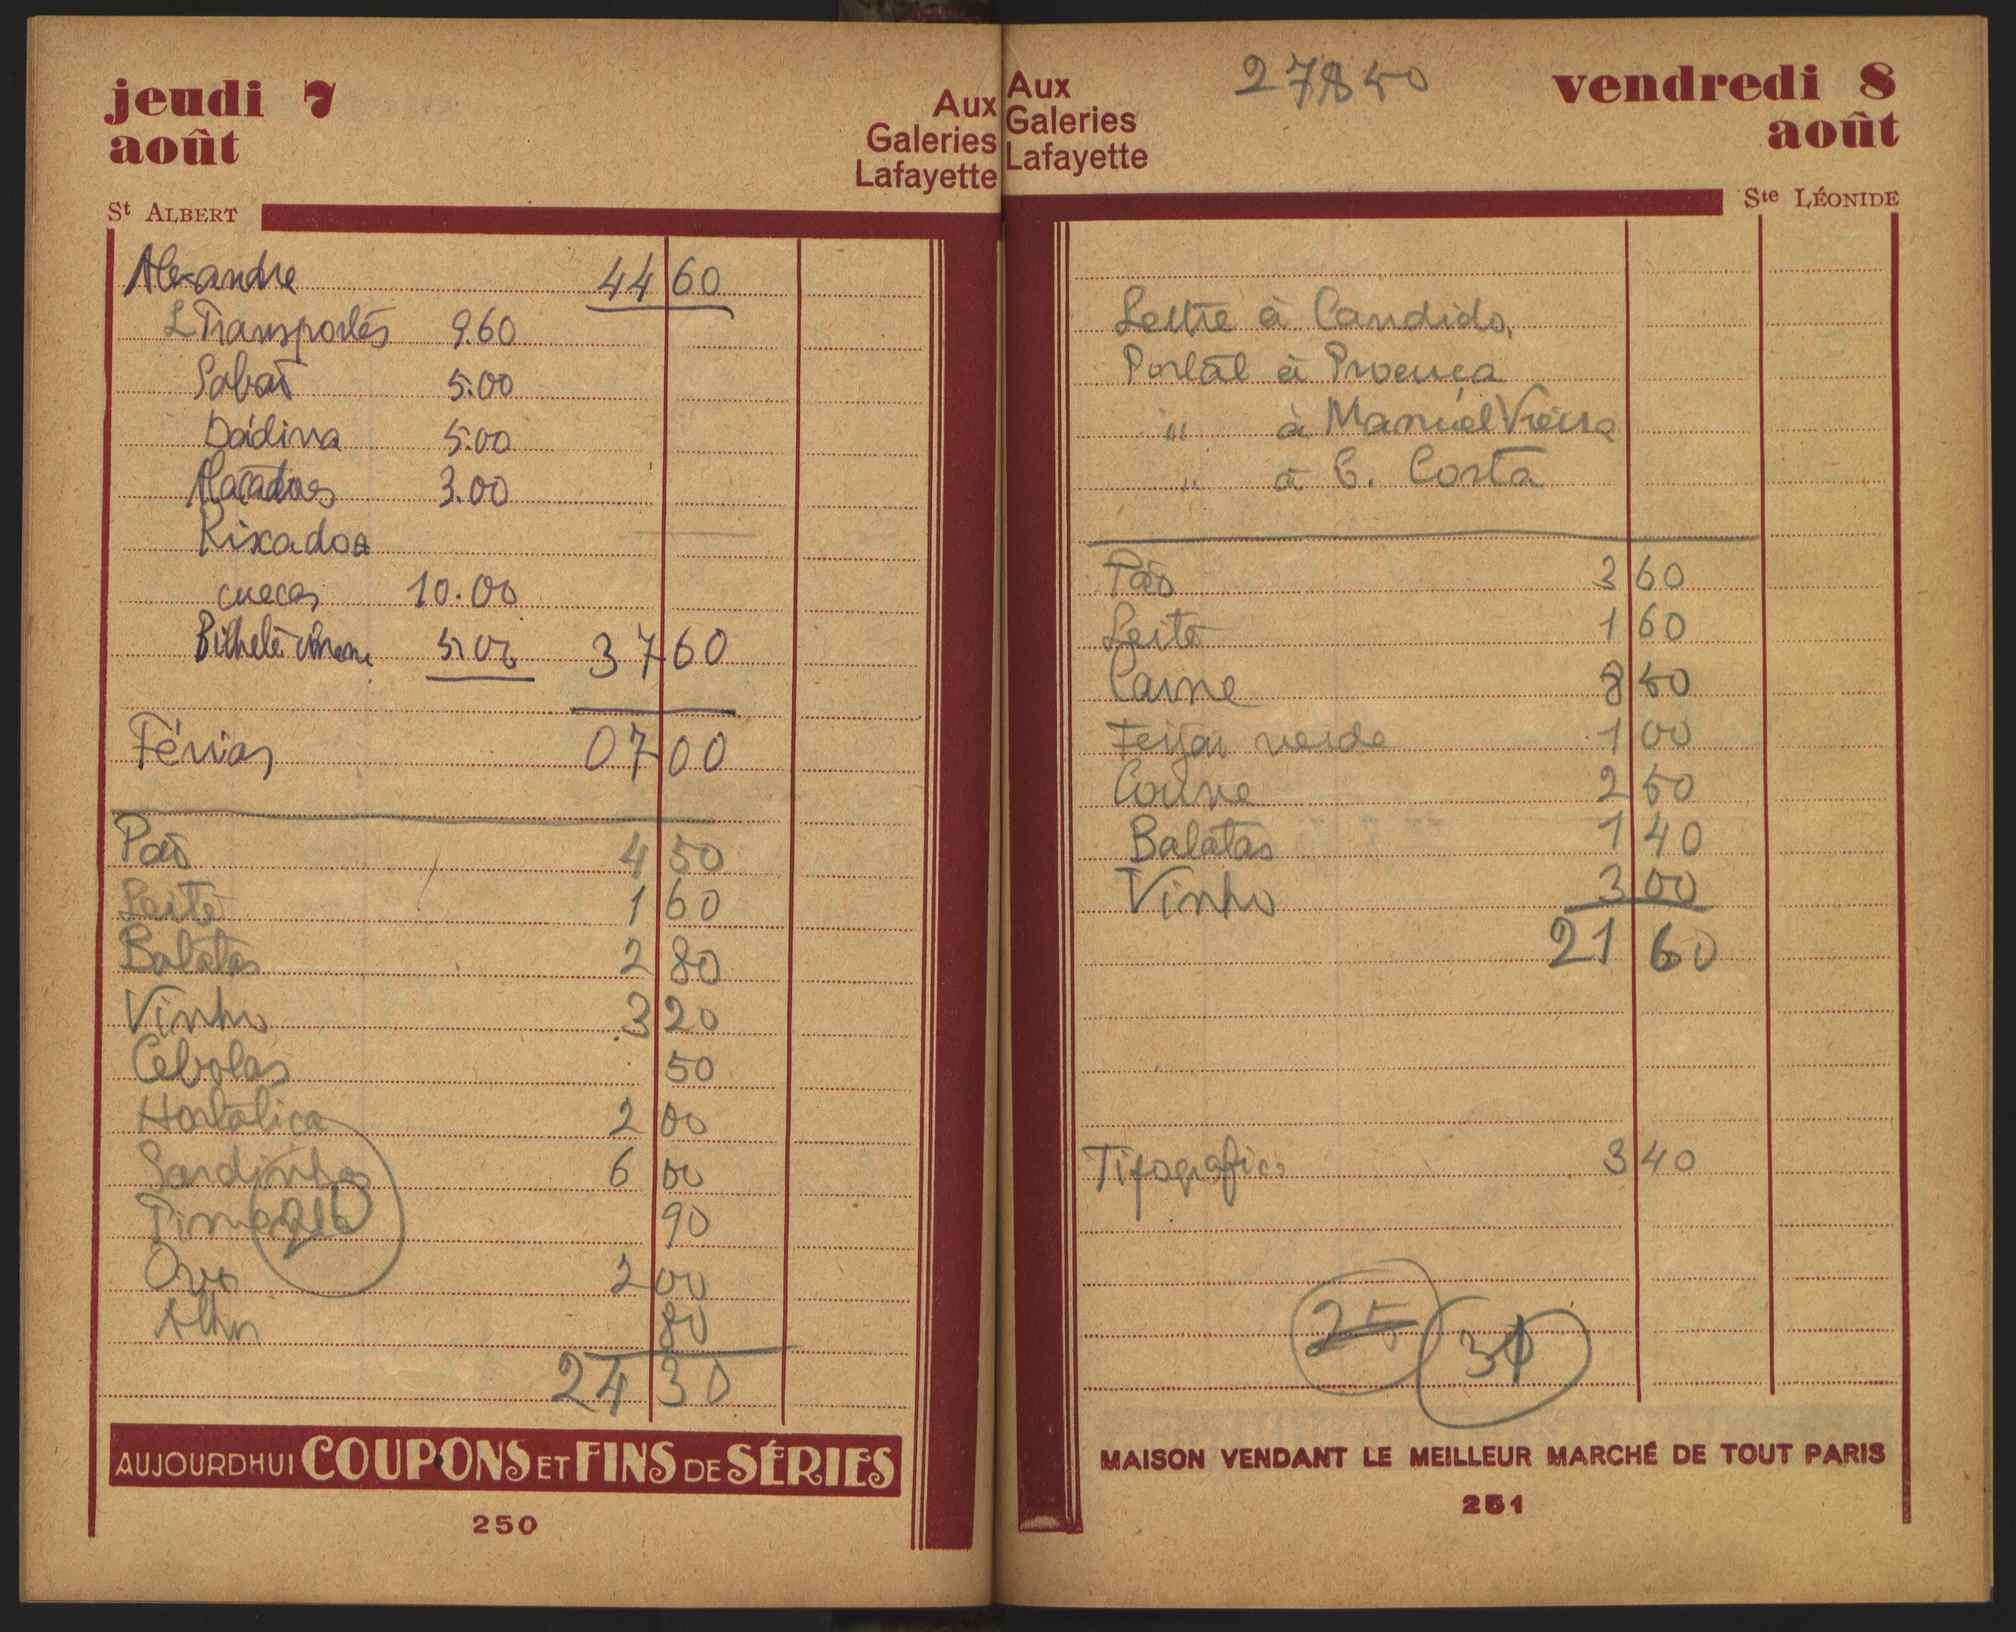 jeudi 7
août
Aux
Galeries
Lafayette
St ALBERT
Alexandre 44 60
Transportes 9.60
Sabão 5.00
Dádiva 5.00
3.00
Riscados
cuecas 10.00
Bilhete 5.00 37 60
Férias 07 00
Pão 4 50
Leite 1 60
Batatas 2 80
Vinho 3 20
Cebolas 50
Hortaliça 2 00
Sardinhas 6 00
Pimenta 90
Ovos 2 00
Alhos 80
24 30
AUJOURDHUI COUPONS ET FINS DE SÉRIES
250
Aux
Galeries
Lafayette
27850
vendredi 8
août
Ste LÉONIDE
Lettre à Candido,
Postal à Proença
" à Manuel Vieira
" à C. Costa
Pão 3 60
Leite 1 60
Carne 8 50
Feijão verde 1 00
Couve 2 50
Batatas 1 40
Vinho 3 00
21 60
Tipografia 3 40
25
MAISON VENDANT LE MEILLEUR MARCHÉ DE TOUT PARIS
251